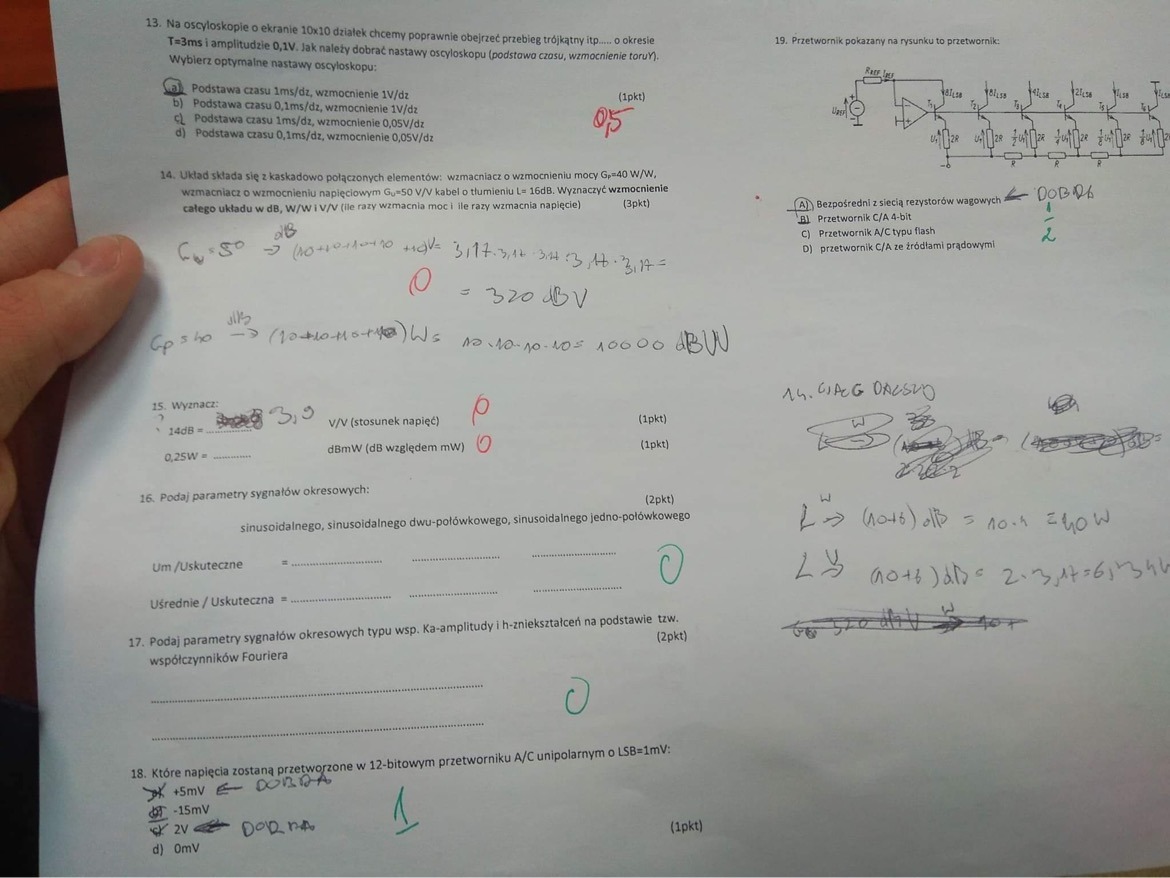 13. Na oscyloskopie o ekranie 10x10 działek chcemy poprawnie obejrzeć przebieg trójkątny itp..... o okresie
T=3ms i amplitudzie 0,1V. Jak należy dobrać nastawy oscyloskopu (podstawa czasu, wzmocnienie toruY).
Wybierz optymalne nastawy oscyloskopu:
a) Podstawa czasu 1ms/dz, wzmocnienie 1V/dz
b) Podstawa czasu 0,1ms/dz, wzmocnienie 1V/dz
c) Podstawa czasu 1ms/dz, wzmocnienie 0,05V/dz
d) Podstawa czasu 0,1ms/dz, wzmocnienie 0,05V/dz
(1pkt)
0,5
14. Układ składa się z kaskadowo połączonych elementów: wzmacniacz o wzmocnieniu mocy Gₚ=40 W/W,
wzmacniacz o wzmocnieniu napięciowym Gᵤ=50 V/V kabel o tłumieniu L= 16dB. Wyznaczyć wzmocnienie
całego układu w dB, W/W i V/V (ile razy wzmacnia moc i ile razy wzmacnia napięcie) (3pkt)
dB
Gᵤ=50 → (10+10+10+10 +10)V= 3,17·3,17·3,17·3,17·3,17=
0
= 320 dBV
dB
Gp=40 → (10+10+10+10)W= 10·10·10·10= 10000 dBW
15. Wyznacz:
? 14dB = 3,9 V/V (stosunek napięć) 0 (1pkt)
0,25W = ............. dBmW (dB względem mW) 0 (1pkt)
16. Podaj parametry sygnałów okresowych: (2pkt)
sinusoidalnego, sinusoidalnego dwu-połówkowego, sinusoidalnego jedno-połówkowego
Um /Uskuteczne = ............................... ............................... ...............................
0
Uśrednie / Uskuteczna = ............................... ............................... ...............................
17. Podaj parametry sygnałów okresowych typu wsp. Ka-amplitudy i h-zniekształceń na podstawie tzw.
współczynników Fouriera (2pkt)
0
18. Które napięcia zostaną przetworzone w 12-bitowym przetworniku A/C unipolarnym o LSB=1mV:
+5mV ← DOBRA
-15mV
c) 2V ← DOBRA
d) 0mV
1
(1pkt)
19. Przetwornik pokazany na rysunku to przetwornik:
R_REF I_REF
8I_LSB I_LSB 4I_LSB 2I_LSB I_LSB I_LSB
U_REF
2R 2R 2R 2R 2R
R R R
A) Bezpośredni z siecią rezystorów wagowych ← DOBRA
B) Przetwornik C/A 4-bit
C) Przetwornik A/C typu flash
D) przetwornik C/A ze źródłami prądowymi
1/2
14. CIĄG DALSZY
W
L → (10+6) dB = 10·4 = 40W
V
L → (10+6) dB = 2·3,17=6,34V
320 dBV